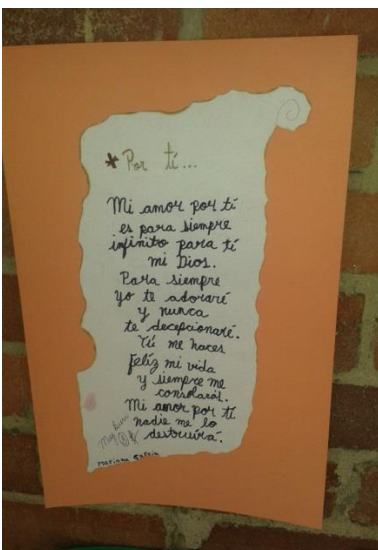 * Por tí...
Mi amor por tí
es para siempre
infinito para tí
mi Dios.
Para siempre
yo te adoraré
y nunca
te decepcionaré.
Tú me haces
feliz mi vida
y siempre me
consolarás.
Mi amor por tí
nadie me lo
destruirá.
Muy Bien
Mariana Galvin